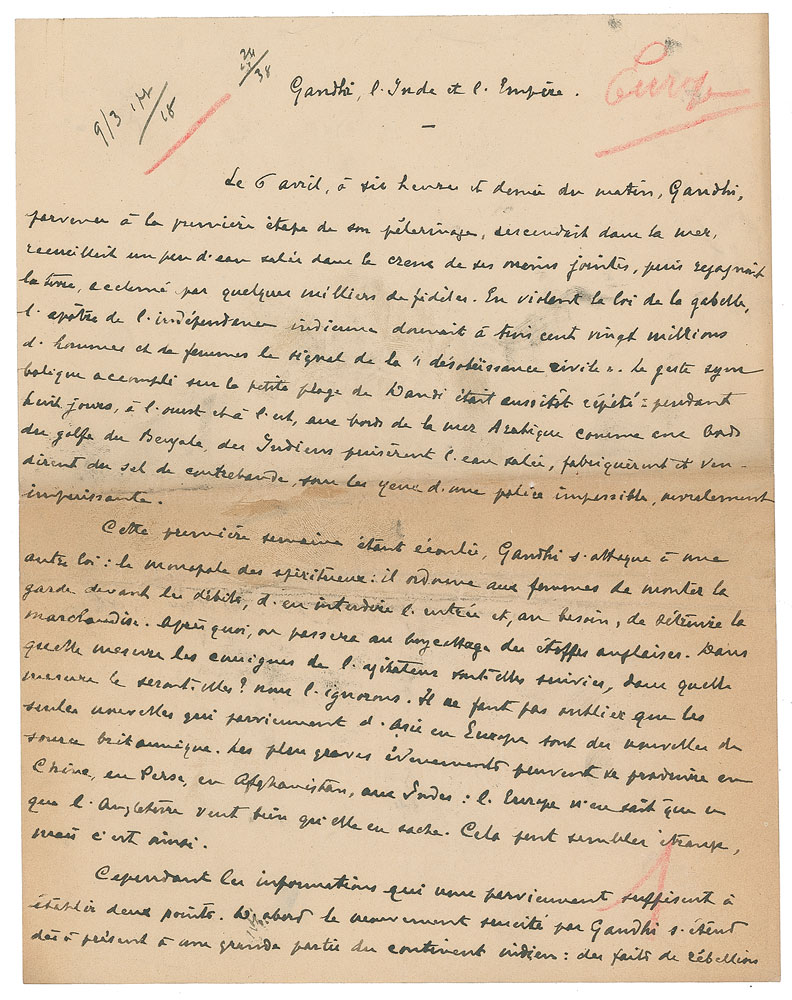 24/38
9/3 174/18
Gandhi, l'Inde et l'Empire.
Europe
Le 6 avril, à six heures et demie du matin, Gandhi,
parvenu à la première étape de son pèlerinage, descendait dans la mer,
recueillait un peu d'eau salée dans le creux de ses mains jointes, puis regagnait
la terre, acclamé par quelques milliers de fidèles. En violant la loi de la gabelle,
l'apôtre de l'indépendance indienne donnait à trois cent vingt millions
d'hommes et de femmes le signal de la "désobéissance civile". Le geste sym
bolique accompli sur la petite plage de Dandi était aussitôt répété : pendant
huit jours, à l'ouest et à l'est, aux bords de la mer Arabique comme aux bords
du golfe du Bengale, des Indiens puisèrent l'eau salée, fabriquèrent et ven-
dirent du sel de contrebande, sous les yeux d'une police impassible, moralement
impuissante.
Cette première semaine étant écoulée, Gandhi s'attaque à une
autre loi : le monopole des spiritueux : il ordonne aux femmes de monter la
garde devant les débits, d'en interdire l'entrée et, au besoin, de détruire la
marchandise. Après quoi, on passera au boycottage des étoffes anglaises. Dans
quelle mesure les consignes de l'agitateur sont-elles suivies, dans quelle
mesure le seront-elles ? nous l'ignorons. Il ne faut pas oublier que les
seules nouvelles qui parviennent d'Asie en Europe sont des nouvelles de
source britannique. Les plus graves événements peuvent se produire en
Chine, en Perse, en Afghanistan, aux Indes : l'Europe n'en sait que ce
que l'Angleterre veut bien qu'elle en sache. Cela peut sembler étrange,
mais c'est ainsi.
Cependant les informations qui nous parviennent suffisent à
établir deux points. D'abord le mouvement suscité par Gandhi s'étend
dès à présent à une grande partie du continent indien : des faits de rébellion
1